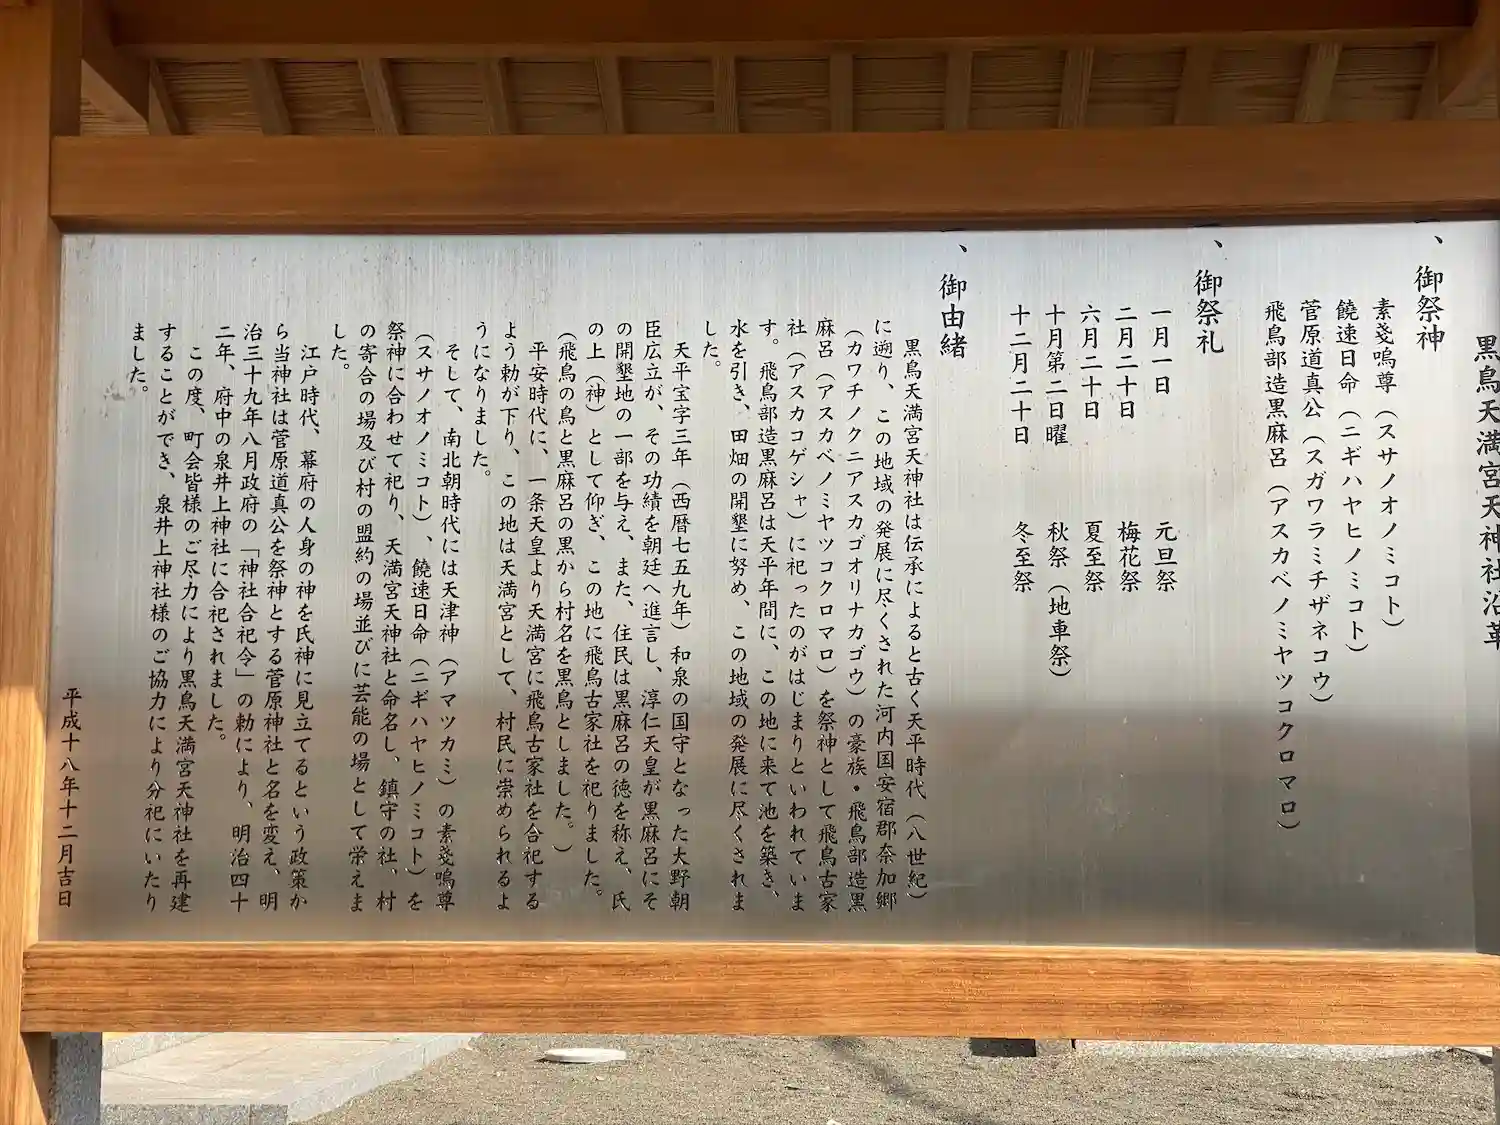 黒鳥天満宮天神社沿革
、御祭神
素戔嗚尊（スサノオノミコト）
饒速日命（ニギハヤヒノミコト）
菅原道真公（スガワラミチザネコウ）
飛鳥部造黒麻呂（アスカベノミヤツコクロマロ）
、御祭礼
一月一日 元旦祭
二月二十日 梅花祭
六月二十日 夏至祭
十月第二日曜 秋祭（地車祭）
十二月二十日 冬至祭
、御由緒
黒鳥天満宮天神社は伝承によると古く天平時代（八世紀）
に遡り、この地域の発展に尽くされた河内国安宿郡奈加郷
（カワチノクニアスカゴオリナカゴウ）の豪族・飛鳥部造黒
麻呂（アスカベノミヤツコクロマロ）を祭神として飛鳥古家
社（アスカコゲシャ）に祀ったのがはじまりといわれていま
す。飛鳥部造黒麻呂は天平年間に、この地に来て池を築き、
水を引き、田畑の開墾に努め、この地域の発展に尽くされま
した。
天平宝字三年（西暦七五九年）和泉の国守となった大野朝
臣広立が、その功績を朝廷へ進言し、淳仁天皇が黒麻呂にそ
の開墾地の一部を与え、また、住民は黒麻呂の徳を称え、氏
の上（神）として仰ぎ、この地に飛鳥古家社を祀りました。
（飛鳥の鳥と黒麻呂の黒から村名を黒鳥としました。）
平安時代に、一条天皇より天満宮に飛鳥古家社を合祀する
よう勅が下り、この地は天満宮として、村民に崇められるよ
うになりました。
そして、南北朝時代には天津神（アマツカミ）の素戔嗚尊
（スサノオノミコト）、饒速日命（ニギハヤヒノミコト）を
祭神に合わせて祀り、天満宮天神社と命名し、鎮守の社、村
の寄合の場及び村の盟約の場並びに芸能の場として栄えま
した。
江戸時代、幕府の人身の神を氏神に見立てるという政策か
ら当神社は菅原道真公を祭神とする菅原神社と名を変え、明
治三十九年八月政府の「神社合祀令」の勅により、明治四十
二年、府中の泉井上神社に合祀されました。
この度、町会皆様のご尽力により黒鳥天満宮天神社を再建
することができ、泉井上神社様のご協力により分祀にいたり
ました。
平成十八年十二月吉日